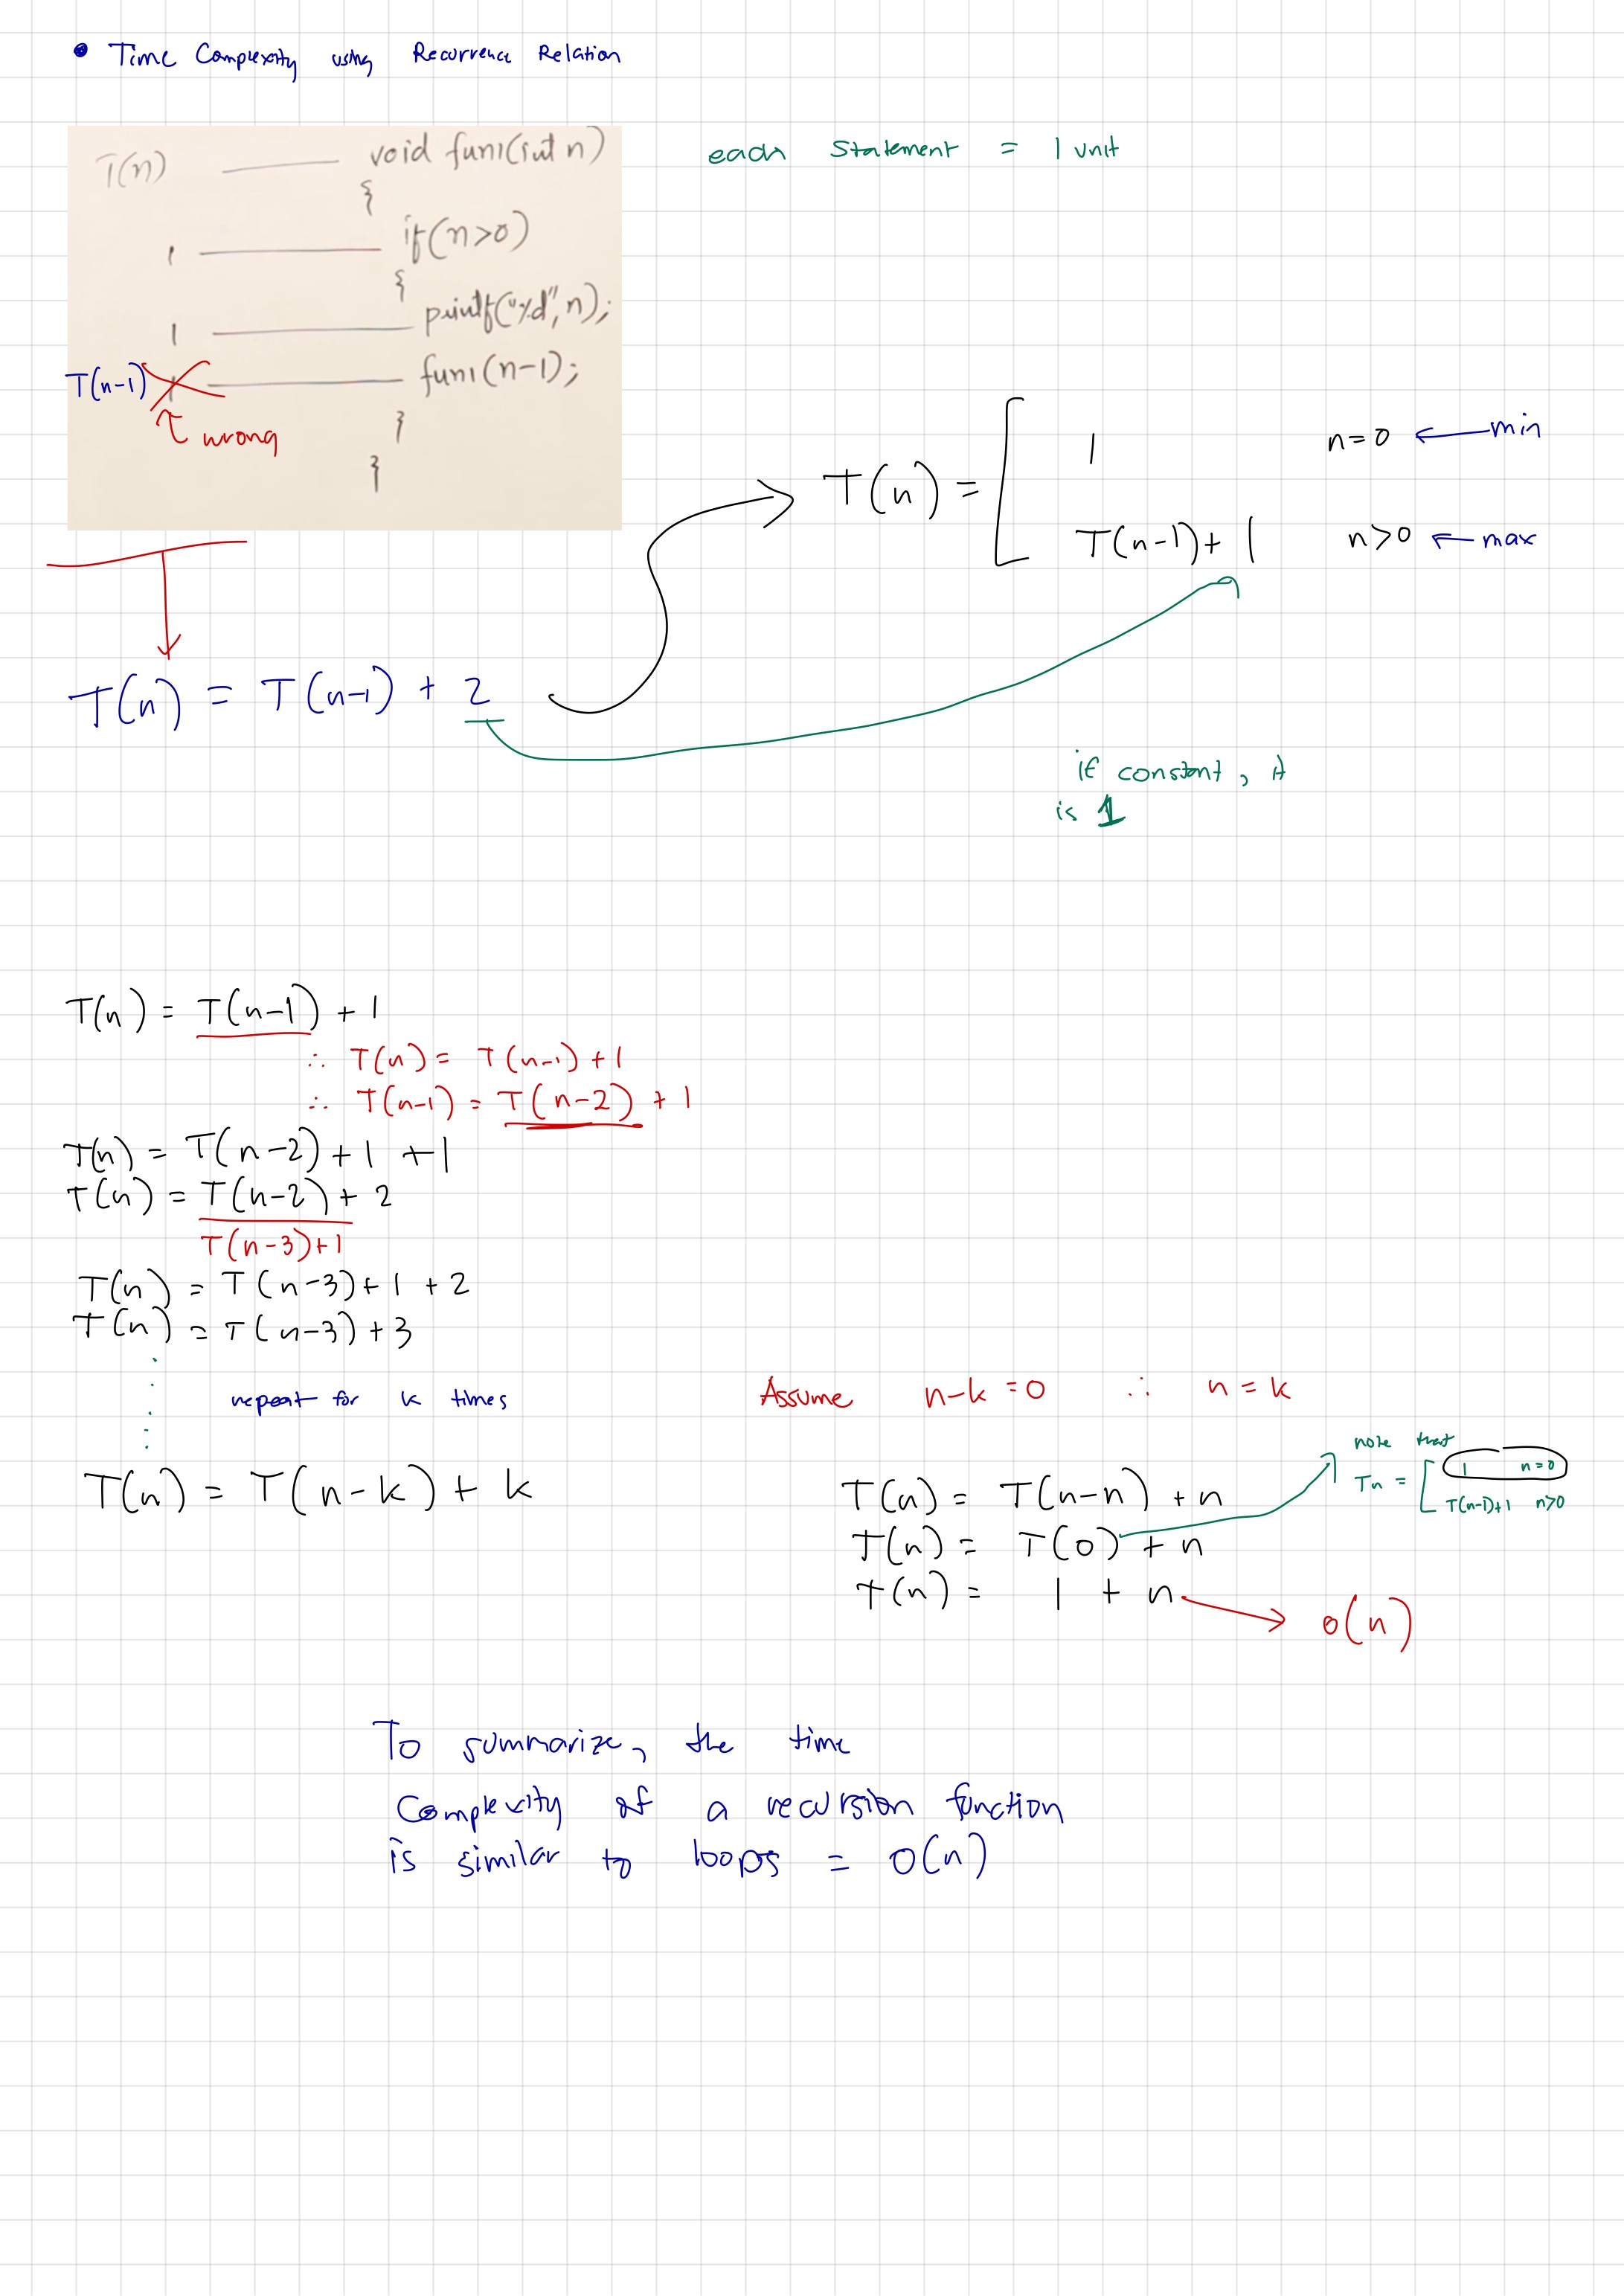 • Time Complexity using Recurrence Relation
T(n) void fun1(int n)
{
1 if(n>0)
{
1 printf("%d", n);
T(n-1) 1 fun1(n-1);
↑ wrong }
}
each statement = 1 unit
T(n) = [ 1 n=0 ← min
T(n-1)+1 n>0 ← max
T(n) = T(n-1) + 2
if constant, it
is 1
T(n) = T(n-1) + 1
∴ T(n) = T(n-1) + 1
∴ T(n-1) = T(n-2) + 1
T(n) = T(n-2) + 1 + 1
T(n) = T(n-2) + 2
T(n-3)+1
T(n) = T(n-3) + 1 + 2
T(n) = T(n-3) + 3
repeat for k times
T(n) = T(n-k) + k
Assume n-k = 0 ∴ n = k
note that
Tn = [ 1 n=0
T(n-1)+1 n>0
T(n) = T(n-n) + n
T(n) = T(0) + n
T(n) = 1 + n → O(n)
To summarize, the time
complexity of a recursion function
is similar to loops = O(n)